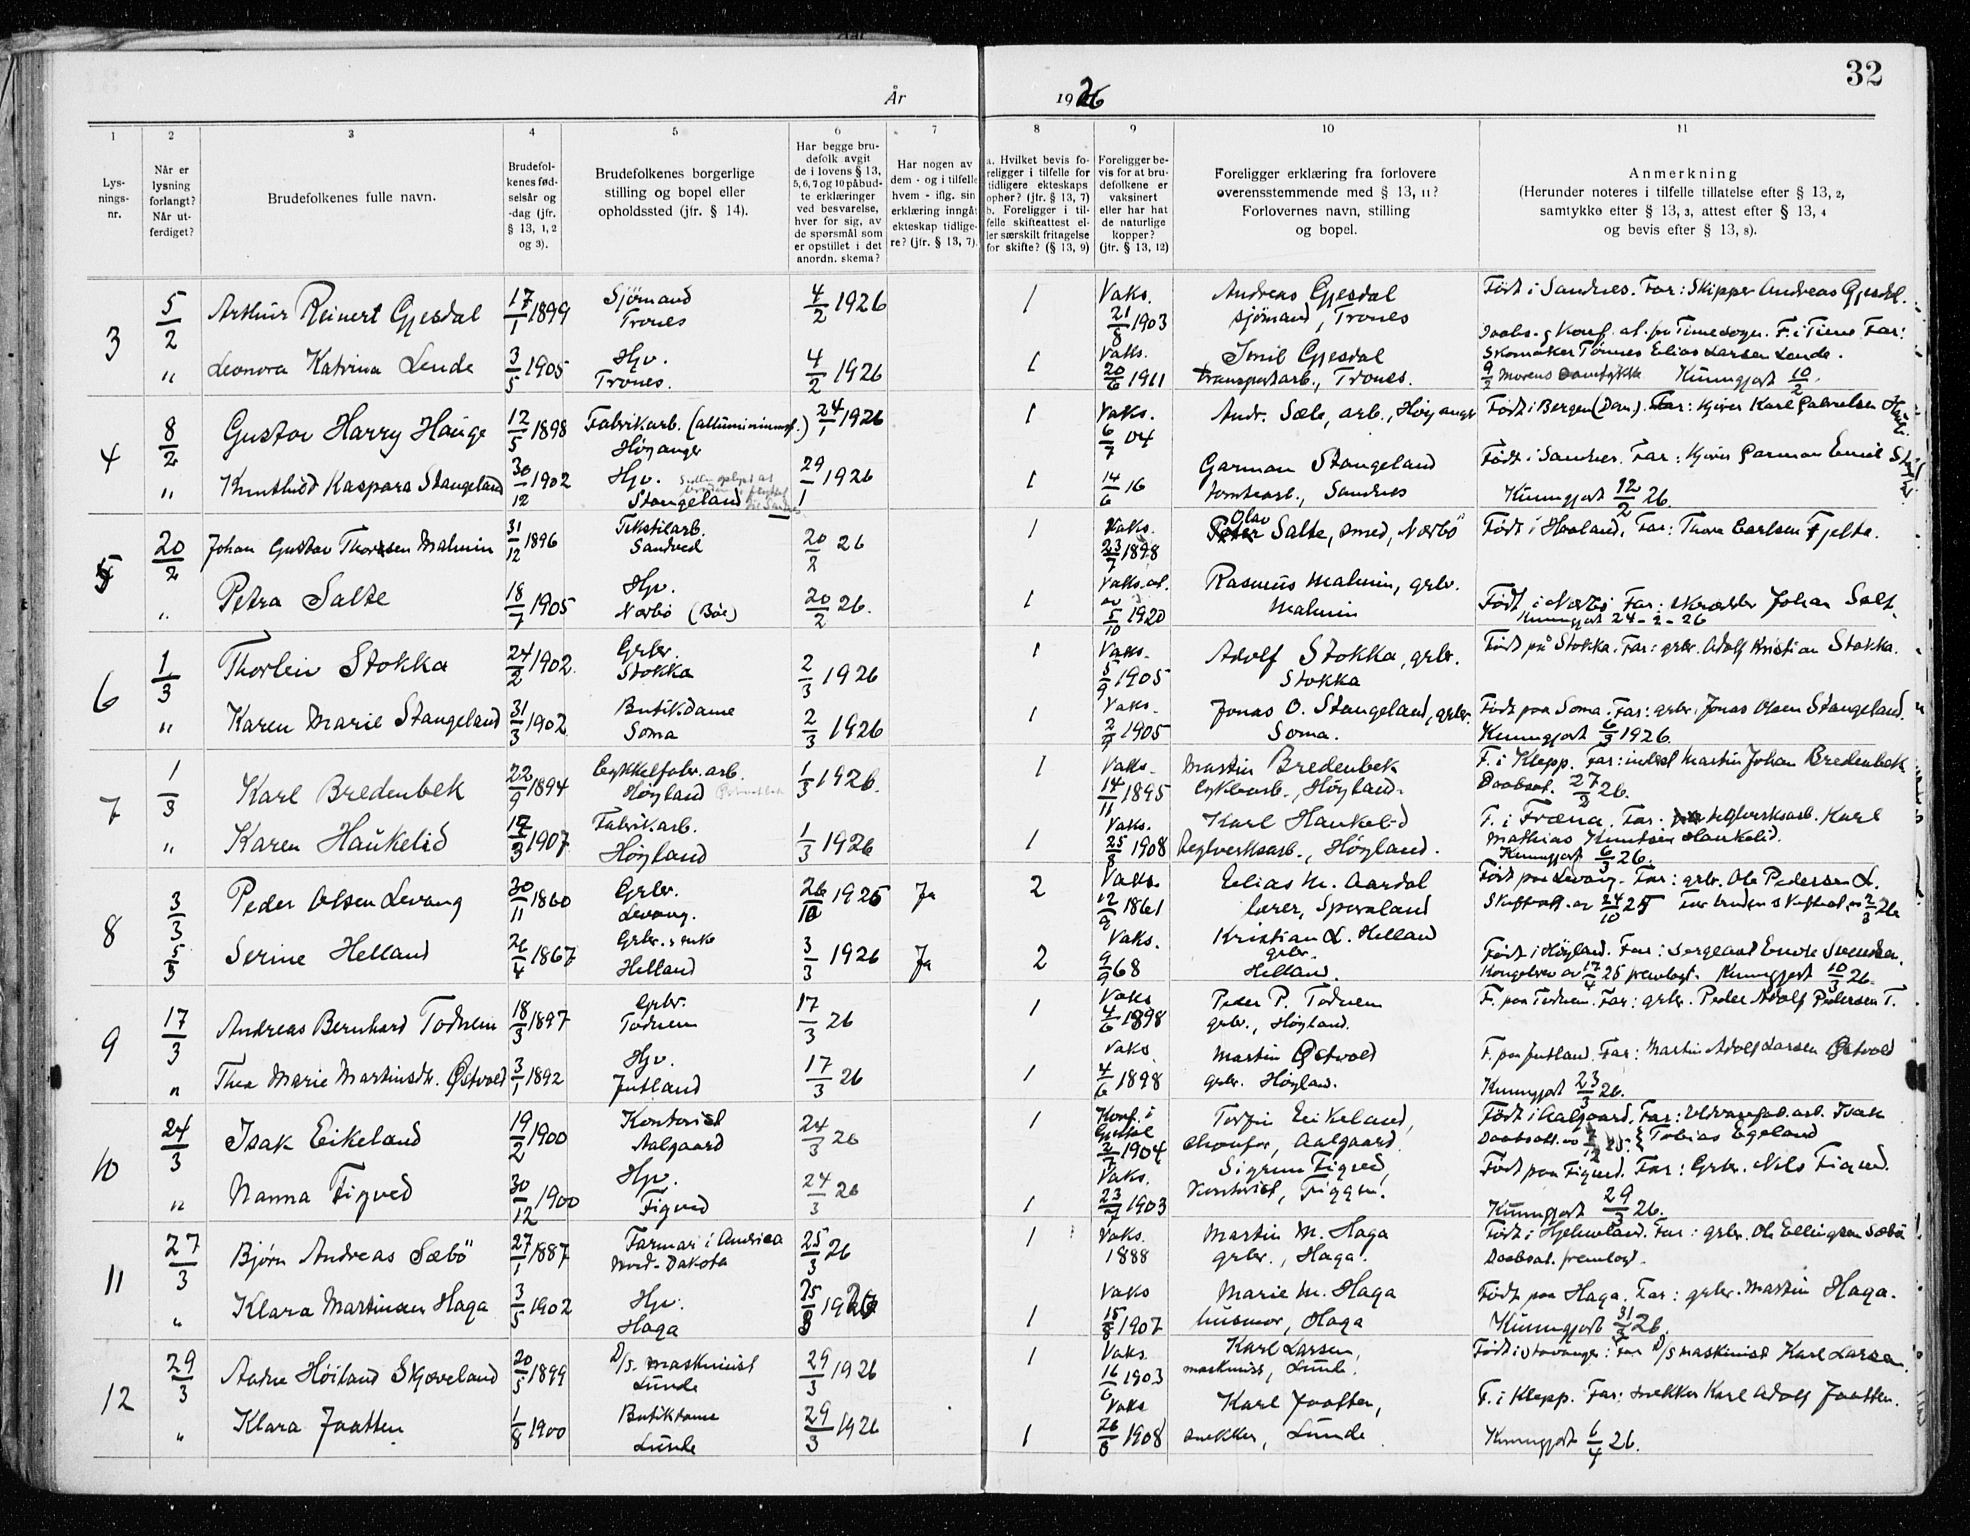 32
År 1926
1 2 3 4 5 6 7 8 9 10 11
Lysningsnr.
Når er lysning forlangt? Når utferdiget?
Brudefolkenes fulle navn.
Brudefolkenes fødselsår og -dag (jfr. § 13, 1, 2 og 3).
Brudefolkenes borgerlige stilling og bopel eller opholdssted (jfr. § 14).
Har begge brudefolk avgit de i lovens § 13, 5, 6, 7 og 10 påbudte erklæringer ved besvarelse, hver for sig, av de spørsmål som er opstillet i det anordn. skema?
Har nogen av dem - og i tilfelle hvem - iflg. sin erklæring inngåt ekteskap tidligere? (jfr. § 13, 7).
a. Hvilket bevis foreligger i tilfelle for tidligere ekteskaps ophør? (jfr. § 13, 7) b. Foreligger i tilfelle skifteattest eller særskilt fritagelse for skifte? (§ 13, 9)
Foreligger bevis for at brudefolkene er vaksinert eller har hat de naturlige kopper? (jfr. § 13, 12)
Foreligger erklæring fra forlovere overensstemmende med § 13, 11? Forlovernes navn, stilling og bopel.
Anmerkning (Herunder noteres i tilfelle tillatelse efter § 13, 2, samtykke efter § 13, 3, attest efter § 13, 4 og bevis efter § 13, 8).
3 5/2 Arthur Reinert Gjesdal 17/1 1899 Sjømand Trones 4/2 1926 1 Vaks. 21/8 1903 Andreas Gjesdal sjømand, Trones Født i Sandnes. Far: Skipper Andreas Gjesdal.
" Leonora Katrina Lende 3/5 1905 Hjv. Trones. 4/2 1926 1 Vaks. 20/6 1911 Emil Gjesdal transportarb., Trones. F. i Time Far: Skomaker Tønnes Elias Larsen Lende. 9/2 Morens samtykke Kunngjort 10/2.
4 8/2 Gustav Harry Hauge 12/5 1898 Fabrikarb. Høyanger 24/1 1926 1 Vaks. 6/7 04 Andr. Sæle, arb., Høyanger Født i Bergen Far: Karl Gabrielsen
" Knuthild Kaspara Stangeland 30/12 1902 Hjv. Stangeland 29/1 1926 1 14/6 16 Garman Stangeland tomtearb., Sandnes Født i Sandnes. Far: Garman Emil Kunngjort 12/2 26.
5 20/2 Johan Gustav Thorsen Malmin 31/12 1896 Tekstilarb. Sandved 20/2 26 1 Vaks. 23/7 1898 Olav Salte, smed, Nærbø Født i Høoland, Far: Thore Carlsen Fjelte.
" Petra Salte 18/7 1905 Hjv. Nærbø (Bøe) 20/2 26. 1 Vaks. at. av 5/10 1920 Rasmus Malmin, grbr. Malmin Født i Nærbø Far: skrædder Johan Salt. Kunngjort 24-2-26
6 1/3 Thorleiv Stokka 24/2 1902. Grbr. Stokka 2/3 1926 1 Vaks. 5/9 1905 Adolf Stokka, grbr. Stokka Født på Stokka. Far: grbr. Adolf Kristian Stokka.
" Karen Marie Stangeland 31/3 1902 Butikdame Soma 2/3 1926 1 Vaks. 2/9 1905 Jonas O. Stangeland, grbr. Soma. Født paa Soma. Far: grbr. Jonas Olsen Stangeland. Kunngjort 6/3 1926.
7 1/3 Karl Bredenbek 22/9 1894 Cykkelfabr. arb. Høyland 1/3 1926. 1 Vaks. 14/11 1895 Martin Bredenbek cyklearb., Høyland. F. i Klepp. Far: indst Martin Johan Bredenbek Daabsat. 27/2 26.
" Karen Haukelid 1907 Fabrikarb. Høyland 1/3 1926 1 Vaks. 25/8 1908 Karl Haukelid teglverksarb., Høyland. F. i Fræna. Far: teglverksarb. Karl Mathias Knutsen Haukelid. Kunngjort 6/3 26.
8 3/3 Peder Olsen Levang 30/11 1860 Grbr. Levang. 26/10 1925 Ja 2 Vaks. 12/9 1861 Elias M. Aardal lærer, Sporaland Født paa Levang. Far: grbr. Ole Pedersen L. Skifteatt. av 24/10 25
5/3 Serine Helland 26/4 1867 Grbr. enke Helland 3/3 1926 Ja 2 Vaks. 9/9 68 Kristian L. Helland grbr. Helland. Født i Høyland. Far: Sergeant Endre Svendsen. Kongebrev av 17/4 25 fremlagt. Kunngjort 10/3 26.
9 17/3 Andreas Bernhard Todnem 18/3 1897 Grbr. Todnem 17/3 26 1 Vaks 4/6 1898 Peder P. Todnem grbr., Høyland. F. paa Todnem. Far: grbr. Peder Adolf Pedersen T.
" Thea Marie Martinsdtr. Østvold 3/1 1892 Hjv. Jutland 17/3 26 1 Vaks. 4/6 1898 Martin Østvold grbr. Høyland. F. paa Jutland. Far: Martin Adolf Larsen Østvold Kunngjort 23/3 26.
10 24/3 Isak Eikeland 19/2 1900 Kontorist Aalgaard 24/3 26 1 Konf. i Gjesdal 1904 Torfin Eikeland, chaufør, Aalgaard. Født i Aalgaard. Far: Uldvarefab. arb. Isak Tobias Egeland
" Nanna Figved 30/12 1900 Hjv. Figved 24/3 26 1 Vaks. 23/7 1903 Sigrun Figved, kontorist, Figgen. Født paa Figved. Far: Grbr. Nils Figved. Kunngjort 29/3 26.
11 27/3 Bjørn Andreas Sæbö 27/1 1887 Farmar i Amrica Nord-Dakota 25/3 26 1 Vaks. 1888 Martin M. Haga grbr., Haga. Født i Hjelmeland. Far: grbr. Ole Ellingsen Sæbö Daabsat. fremlagt.
" Klara Martinsen Haga 3/5 1902 Hjv. Haga 25/3 1926 1 Vaks 15/8 1907 Marie M. Haga husmor, Haga Født paa Haga. Far: grbr. Martin Haga. Kunngjort 31/3 26.
12 29/3 Andre Höiland Skjæveland 20/5 1899 D/S. maskinist Lunde 29/3 1926 1 Vaks. 16/6 1903 Karl Larsen, maskinist, Lunde. Født i Stavanger: Far D/S maskinist Karl Larsen.
" Klara Jaatten 1/8 1900 Butikdame Lunde 29/3 1926 1 Vaks 26/8 1908 Karl Jaatten, snekker, Lunde F. i Klepp. Far: snekker Karl Adolf Jaatten. Kunngjort 6/4 26.